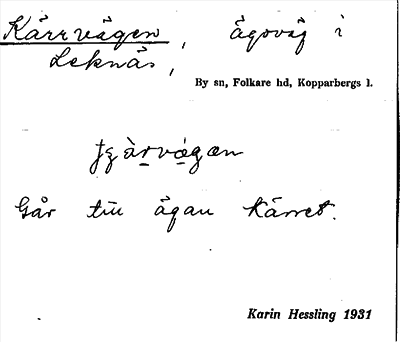 Kärrvägen, ägoväg i
Leknäs,
By sn, Folkare hd, Kopparbergs l.
Går till ägan Kärret.
Karin Hessling 1931